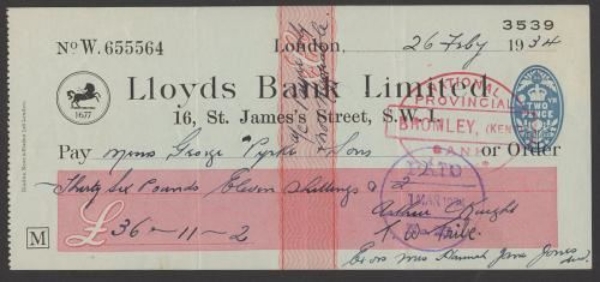 3539
No W. 655564
London, 26 Feby 1934
1677
Lloyds Bank Limited
16, St. James's Street, S.W.1.
NATIONAL
PROVINCIAL
BROMLEY, (KENT)
BANK
TWO PENCE
Pay Messrs George Pyrke & Sons or Order
Thirty Six Pounds Eleven Shillings & 2
PAID
£ 36-11-2
Arthur Knight
M
Exors Mrs Hannah Jane Jones
decd.